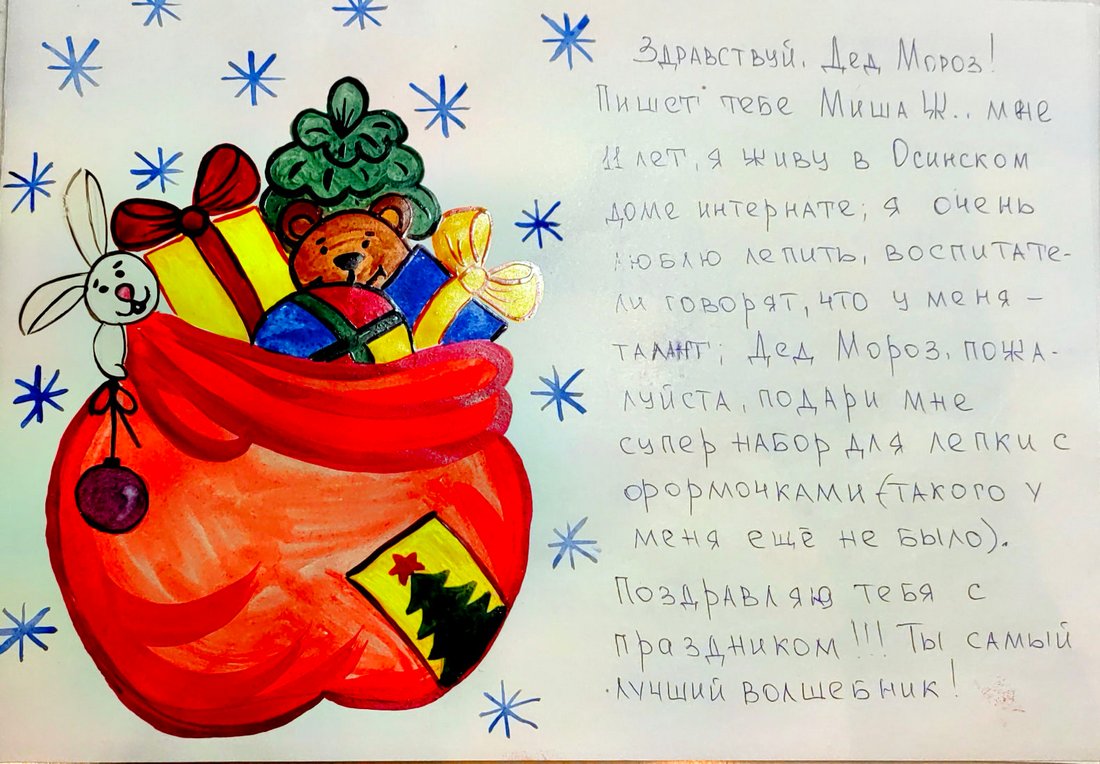 Здравствуй, Дед Мороз!
Пишет тебе Миша Ж., мне
11 лет, я живу в Осинском
доме интернате, я очень
люблю лепить, воспитате-
ли говорят, что у меня -
талант; Дед Мороз, пожа-
луйста, подари мне
супер набор для лепки с
формочками (такого у
меня ещё не было).
Поздравляю тебя с
праздником!!! Ты самый
лучший волшебник!